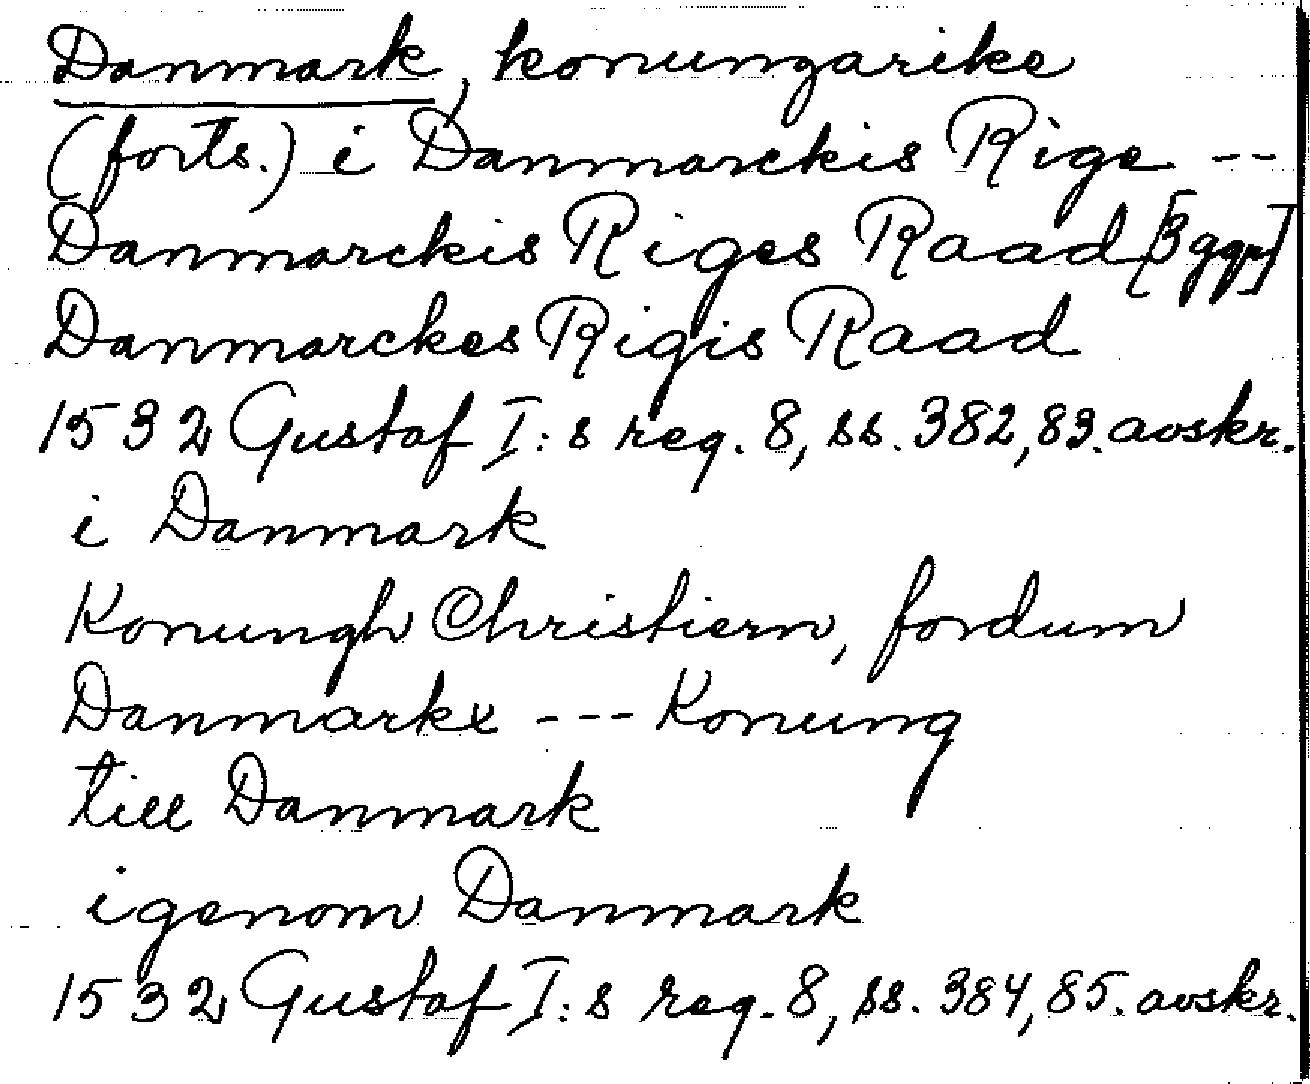 Danmark, konungarike
(forts.) i Danmarckis Rige --
Danmarckis Riges Raad [3 ggr]
Danmarckes Rigis Raad
1532 Gustaf I:s reg. 8, ss. 382,83. avskr.
i Danmark
Konungh Christiern, fordum
Danmarkx --- Konung
till Danmark
igenom Danmark
1532 Gustaf I:s reg. 8, ss. 384, 85. avskr.